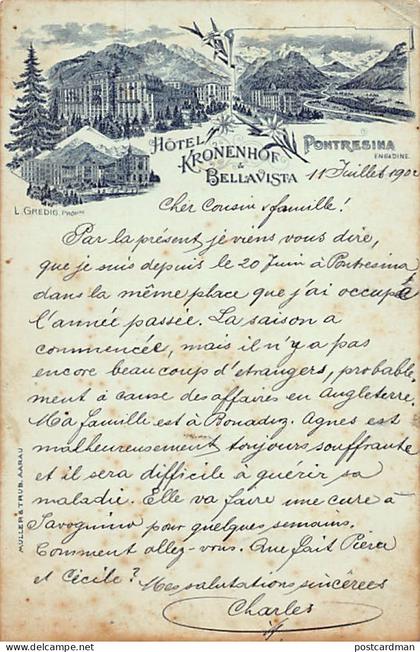 HÔTEL
KRONENHOF
&
BELLAVISTA
PONTRESINA
ENGADINE.
L. GREDIG, PROPRE
11 Juillet 1902
Cher Cousin & famille!
Par la présent, je viens vous dire,
que je suis depuis le 20 Juin à Pontresina
dans la même place que j'ai occupé
l'année passée. La saison a
commencée, mais il n'y a pas
encore beaucoup d'etrangers, probable
ment à cause des affaires en Angleterre.
Ma famille est à Bonaduz. Agnes est
malheureusement toujours souffrante
et il sera difficile à guérir sa
maladie. Elle va faire une cure à
Savognino pour quelques semains.
Comment allez-vous. Que fait Piera
et Cécile? Mes salutations sincères
Charles
MÜLLER & TRÜB, AARAU
Visit my store at www.postcardman.net
postcardman